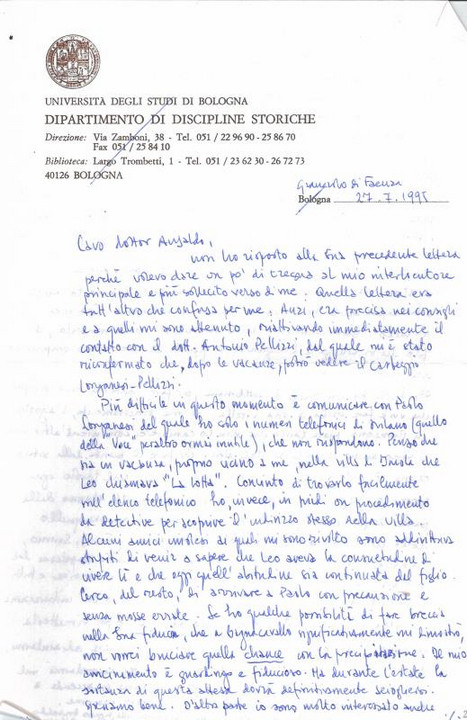 UNIVERSITÀ DEGLI STUDI DI BOLOGNA
DIPARTIMENTO DI DISCIPLINE STORICHE
Direzione: Via Zamboni, 38 - Tel. 051 / 22 96 90 - 25 86 70
Fax 051 / 25 84 10
Biblioteca: Largo Trombetti, 1 - Tel. 051 / 23 62 30 - 26 72 73
40126 BOLOGNA
di Faenza
Bologna 27.7.1995
Caro dottor Ansaldo,
non ho risposto alla Sua precedente lettera
perché volevo dare un po' di tregua al mio interlocutore
principale e più sollecito verso di me. Quella lettera era
tutt'altro che confusa per me. Anzi, era precisa nei consigli
e a quelli mi sono attenuto, riattivando immediatamente il
contatto con il dott. Antonio Pellizzi, dal quale mi è stato
riconfermato che, dopo le vacanze, potrò vedere il carteggio
Longanesi-Pellizzi.
Più difficile in questo momento è comunicare con Paolo
Longanesi del quale ho solo i numeri telefonici di Milano (quello
della "Voce" peraltro ormai inutile), che non rispondono. Penso che
sia in vacanza, proprio vicino a me, nella villa di Imola che
Leo chiamava "La Lotta". Convinto di trovarlo facilmente
sull'elenco telefonico ho, invece, in piedi un procedimento
da detective per scoprire l'indirizzo stesso della villa.
Alcuni amici imolesi ai quali mi sono rivolto sono addirittura
stupiti di venir a sapere che Leo aveva la consuetudine di
vivere lì e che oggi quell'abitudine sia continuata dal figlio.
Cerco, del resto, di arrivare a Paolo con precauzione e
senza mosse errate. Se ho qualche possibilità di fare breccia
nella Sua fiducia, che a Bagnacavallo significativamente mi dimostrò,
non vorrei bruciare quella chance con la precipitazione. Il mio
è guardingo e fiducioso. Ma durante l'estate la
sostanza di questa attesa dovrà definitivamente sciogliersi.
Speriamo bene. D'altra parte io sono molto interessato anche